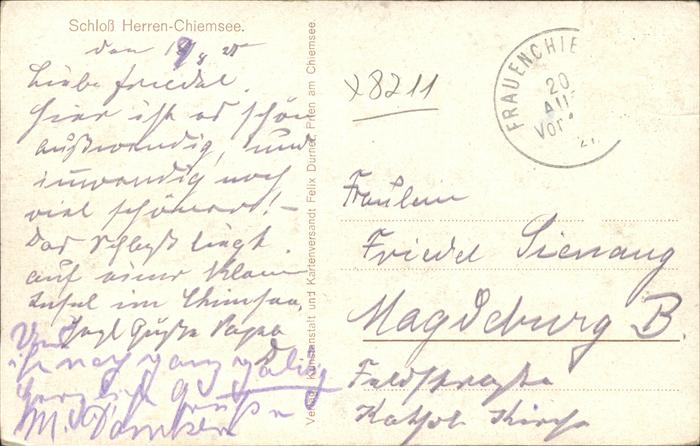 Schloß Herren-Chiemsee.
den 19/8 25
Liebe Friedel.
Hier ist es schön
außwendig, und
inwendig noch
viel schöner! –
Das Schloß liegt
auf einer klein
Insel im Chimsee.
Papa
ich noch ganz
herzlich Grüße
M.
Verlag Kunstanstalt und Kartenversandt Felix Durner, Prien am Chiemsee.
x8211
FRAUENCHIE
20
AUG
Vor
Fräulein
Friedel Sienang
Magdeburg B.
Feldstraße
Kathol Kirche